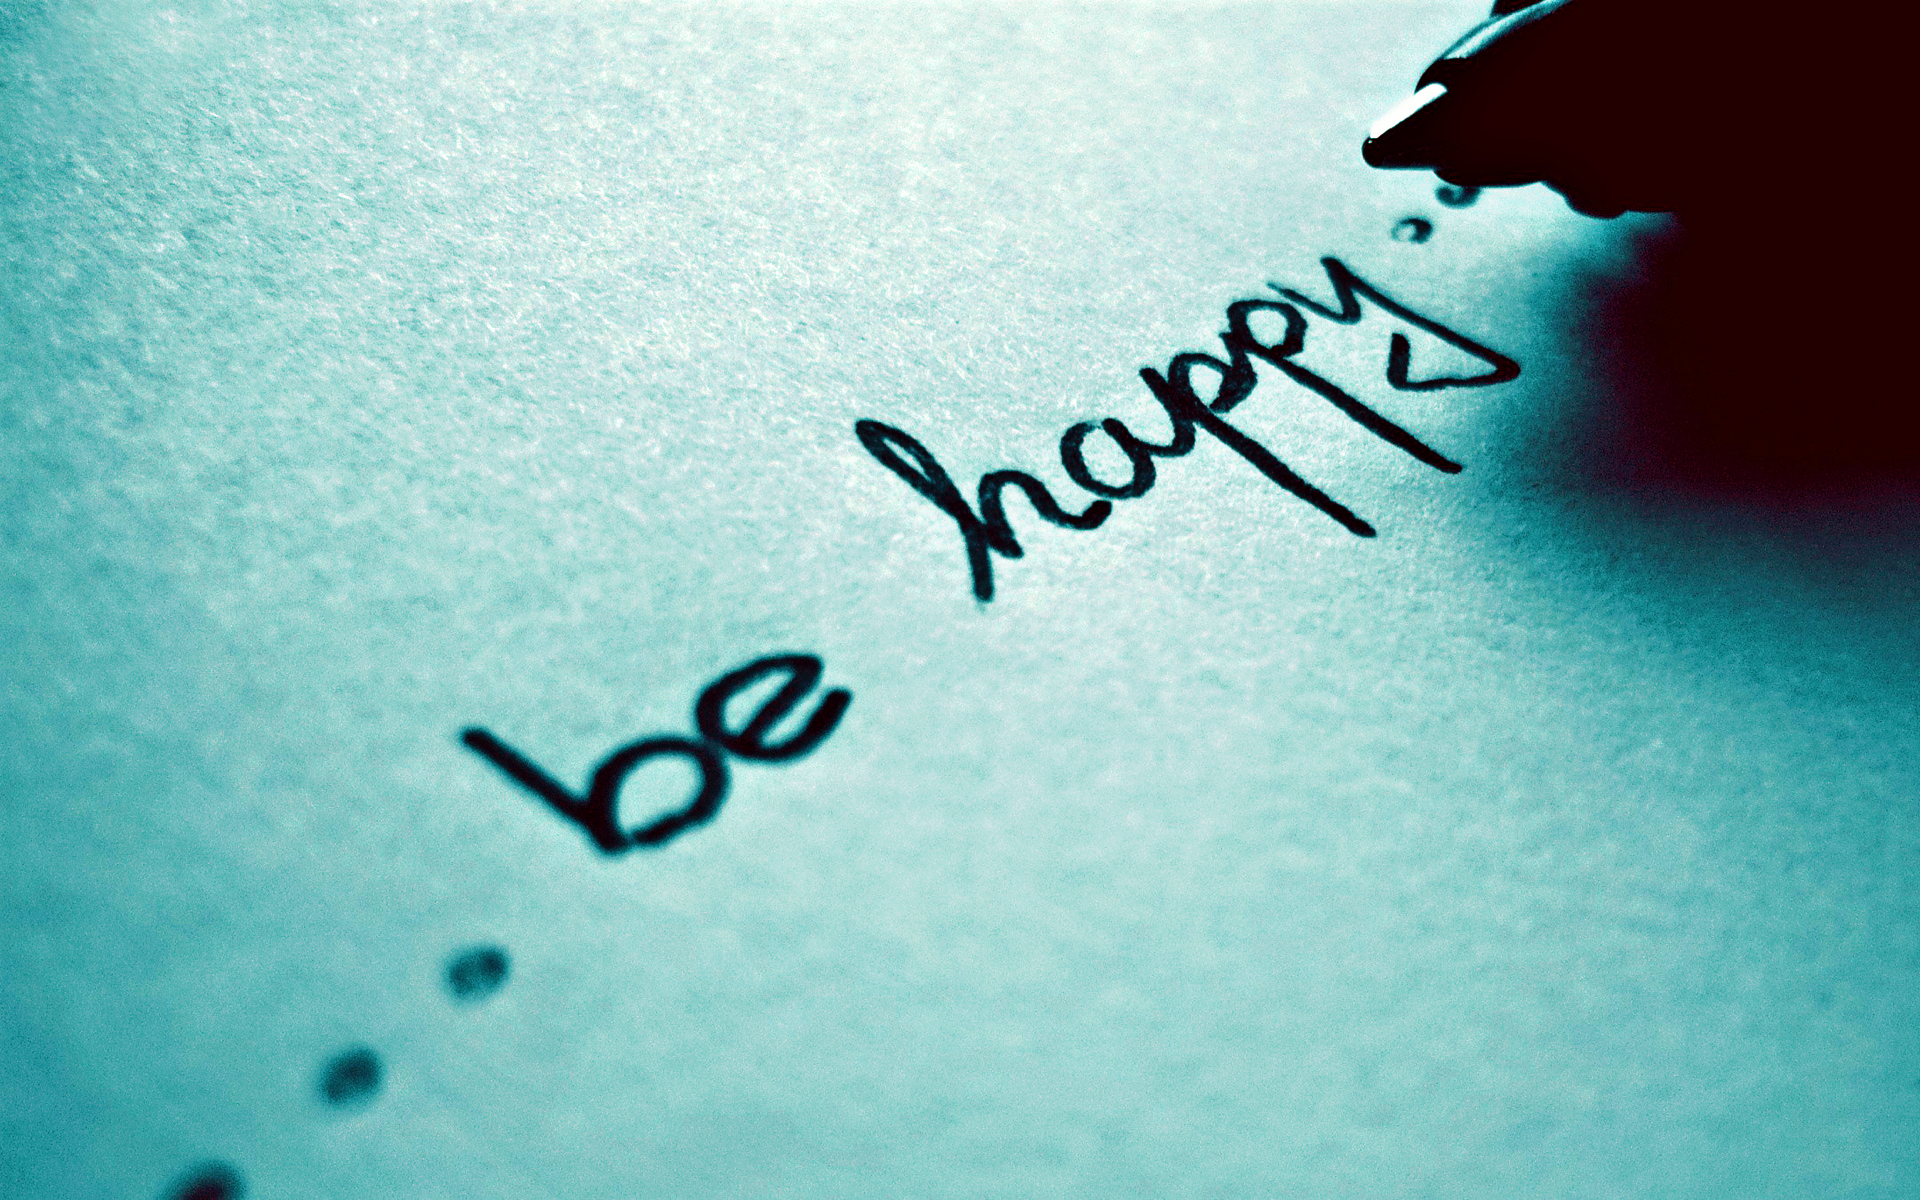 ...be happy..